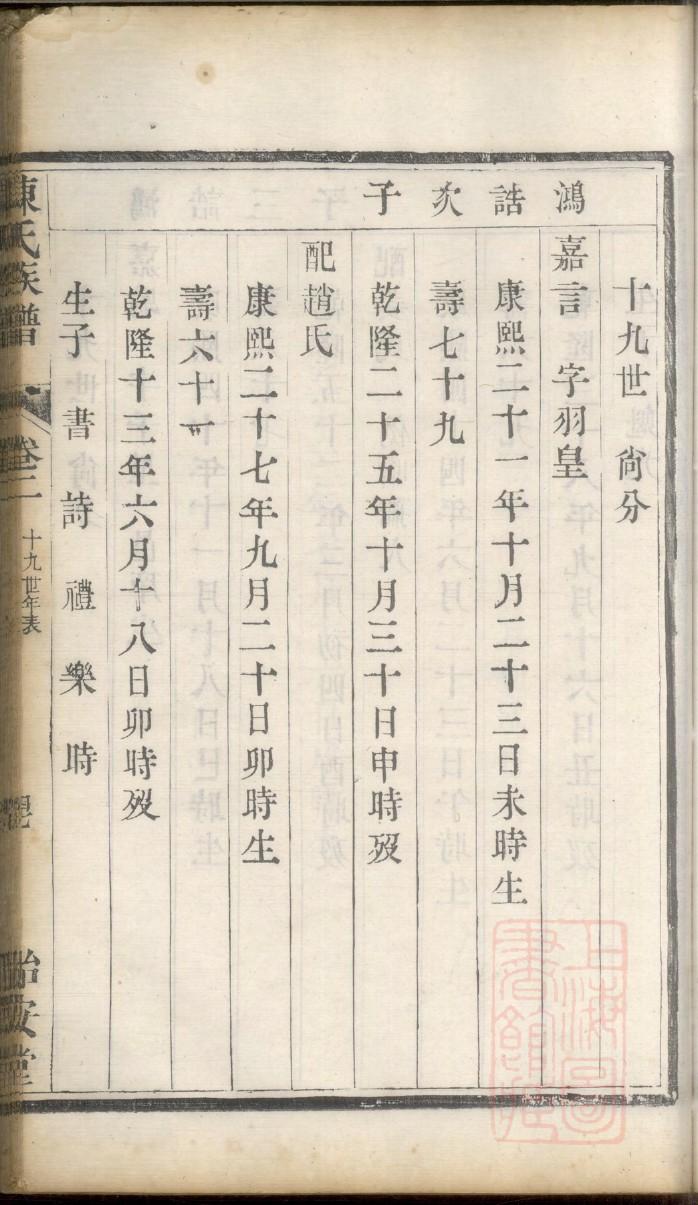 十九世 尙分
鴻誥次子
嘉言 字羽皇
康熙二十一年十月二十三日未時生
壽七十九
乾隆二十五年十月三十日申時歿
配趙氏
康熙二十七年九月二十日卯時生
壽六十一
乾隆十三年六月十八日卯時歿
生子 書 詩 禮 樂 時
陳氏族譜
卷二
十九世年表
怡安堂
上海圖書館藏